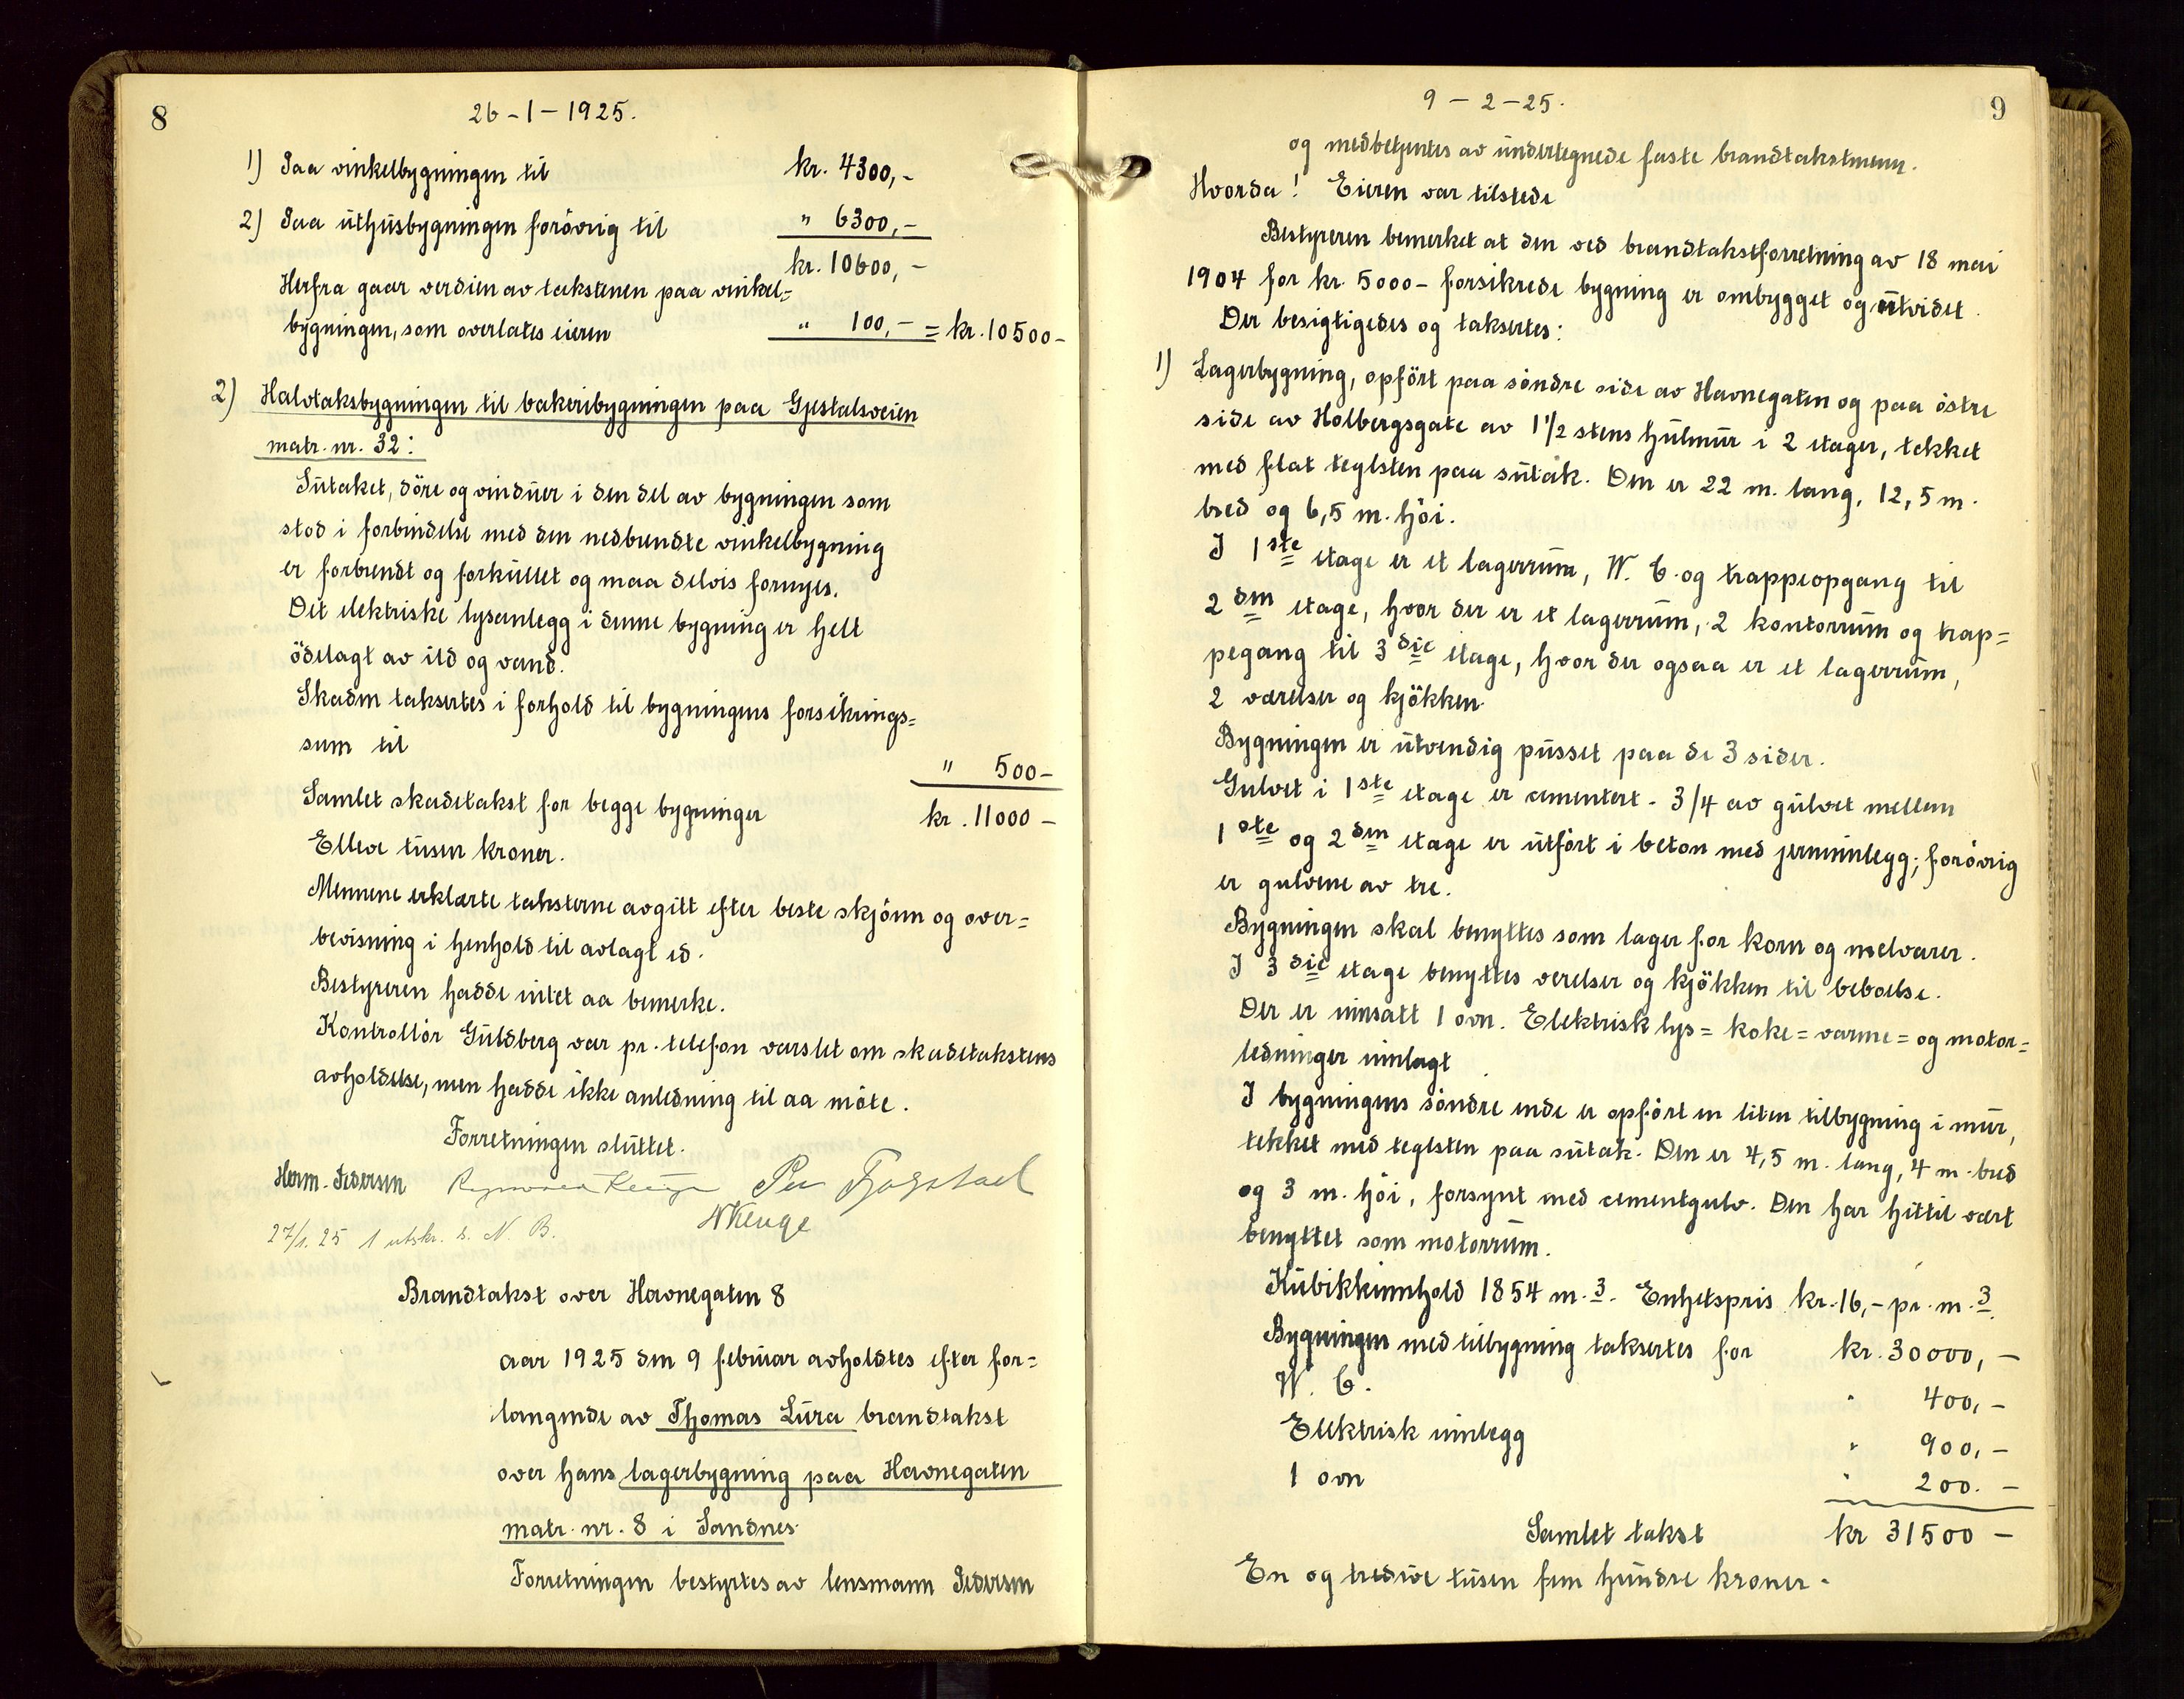 8
26-1-1925.
1) Paa vinkelbygningen til kr. 4300,-
2) Paa uthusbygningen forövrig til " 6300,-
kr. 10600,-
Herfra gaar verdien av takstenen paa vinkel=
bygningen, som overlates eieren " 100,- = kr. 10500-
2) Halvtaksbygningen til bakeribygningen paa Gjestalsveien
matr. nr. 32:
Sutaket, döre og vinduer i den del av bygningen som
stod i forbindelse med den nedbrendte vinkelbygning
er forbrendt og forkullet og maa delvis fornyes.
Det elektriske lysanlegg i denne bygning er helt
ödelagt av ild og vand.
Skaden taksertes i forhold til bygningens forsikrings=
sum til " 500-
Samlet skadetakst for begge bygninger kr. 11000-
Elleve tusen kroner.
Mennene erklærte taksterne avgitt efter beste skjönn og over=
bevisning i henhold til avlagt ed.
Bestyreren hadde intet aa bemerke.
Kontrollör Guldberg var pr. telefon varslet om skadetakstens
avholdelse, men hadde ikke anledning til aa möte.
Forretningen sluttet.
Herm. Pedersen Per Fjogstad
27/1.25 1 utskr. s. N. B.
Brandtakst over Havnegaten 8
aar 1925 den 9 februar avholdtes efter for=
langende av Thomas Lura brandtakst
over hans lagerbygning paa Havnegaten
matr. nr. 8 i Sandnes.
Forretningen bestyrtes av lensmann Pedersen
9
9-2-25.
og medbetjentes av undertegnede faste brandtakstmenn.
Hvorda! Eieren var tilstede
Bestyreren bemerket at den ved brandtakstforretning av 18 mai
1904 for kr. 5000- forsikrede bygning er ombygget og utvidet.
Der besigtigedes og taksertes:
1) Lagerbygning, opfört paa söndre side av Havnegaten og paa östre
side av Holbergsgate av 1 1/2 stens hulmur i 2 etager, tekket
med flat teglsten paa sutak. Den er 22 m. lang, 12,5 m.
bred og 6,5 m. höi.
I 1ste etage er et lagerrum, W. C. og trappeopgang til
2den etage, hvor der er et lagerrum, 2 kontorrum og trap=
pegang til 3die etage, hvor der ogsaa er et lagerrum,
2 værelser og kjökken.
Bygningen er utvendig pusset paa de 3 sider.
Gulvet i 1ste etage er cementert. 3/4 av gulvet mellem
1ste og 2den etage er utfört i beton med jerninnlegg; forövrig
er gulvene av tre.
Bygningen skal benyttes som lager for korn og melvarer.
I 3die etage benyttes værelser og kjökken til beboelse.
Der er innsatt 1 ovn. Elektrisk lys= koke= varme= og motor=
ledninger innlagt.
I bygningens söndre ende er opfört en liten tilbygning i mur,
tekket med teglsten paa sutak. Den er 4,5 m. lang, 4 m. bred
og 3 m. höi, forsynt med cementgulv. Den har hittil vært
benyttet som motorrum.
Kubikkinnhold 1854 m.3. Enhetspris kr. 16,- pr. m.3.
Bygningen med tilbygning taksertes for kr. 30000,-
W. C. " 400,-
Elektrisk innlegg " 900,-
1 ovn " 200.-
Samlet takst kr 31500-
En og tredive tusen fem hundre kroner.